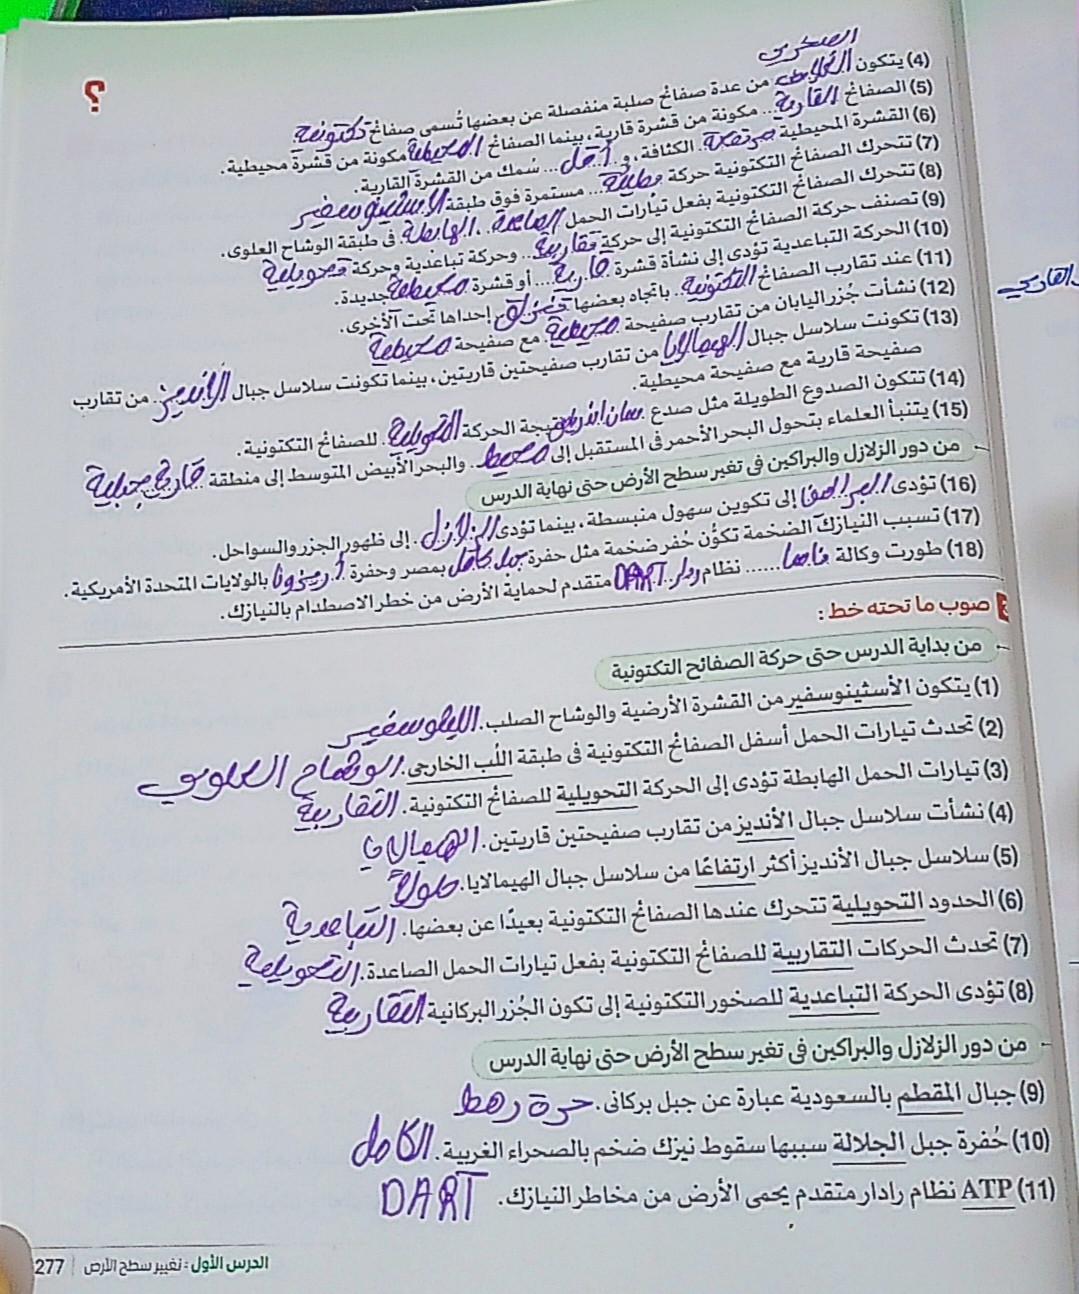 الصخرى
؟
(4) يتكون الغلاف من عدة صفائح صلبة منفصلة عن بعضها تُسمى صفائح تكتونية
(5) الصفائح القارية... مكونة من قشرة قارية، بينما الصفائح المحيطية مكونة من قشرة محيطية.
(6) القشرة المحيطية مرتفعة الكثافة، و.. أقل ... سُمك من القشرة القارية.
(7) تتحرك الصفائح التكتونية حركة بطيئة... مستمرة فوق طبقة الاسثينوسفير
(8) تتحرك الصفائح التكتونية بفعل تيارات الحمل الصاعدة.. الهابطة. فى طبقة الوشاح العلوى.
(9) تصنف حركة الصفائح التكتونية إلى حركة تقاربية.. وحركة تباعدية وحركة تحويلية
(10) الحركة التباعدية تؤدى إلى نشأة قشرة قارية.... أو قشرة محيطية جديدة.
(11) عند تقارب الصفائح التكتونية.. باتجاه بعضها تنزلق إحداها تحت الأخرى.
(12) نشأت جُزر اليابان من تقارب صفيحة محيطية. مع صفيحة محيطية
(13) تكونت سلاسل جبال الهيمالايا من تقارب صفيحتين قاريتين، بينما تكونت سلاسل جبال الانديز. من تقارب
صفيحة قارية مع صفيحة محيطية.
(14) تتكون الصدوع الطويلة مثل صدع سان أندرياس نتيجة الحركة التحويلية. للصفائح التكتونية.
(15) يتنبأ العلماء بتحول البحر الأحمر فى المستقبل إلى محيط.. والبحر الأبيض المتوسط إلى منطقة قارية جبلية
من دور الزلازل والبراكين فى تغير سطح الأرض حتى نهاية الدرس
(16) تؤدى البراكين إلى تكوين سهول منبسطة، بينما تؤدى الزلازل. إلى ظهور الجزر والسواحل.
(17) تسبب النيازك الضخمة تكوُّن حُفر ضخمة مثل حفرة جبل كامل بمصر وحفرة أريزونا بالولايات المتحدة الأمريكية.
(18) طورت وكالة ناسا...... نظام رادار DART متقدم لحماية الأرض من خطر الاصطدام بالنيازك.
3 صوب ما تحته خط :
من بداية الدرس حتى حركة الصفائح التكتونية
(1) يتكون الأسثينوسفير من القشرة الأرضية والوشاح الصلب. الليثوسفير
(2) تحدث تيارات الحمل أسفل الصفائح التكتونية فى طبقة اللُّب الخارجى. الوشاح العلوى
(3) تيارات الحمل الهابطة تؤدى إلى الحركة التحويلية للصفائح التكتونية. التقاربية
(4) نشأت سلاسل جبال الأنديز من تقارب صفيحتين قاريتين. الهيمالايا
(5) سلاسل جبال الأنديز أكثر ارتفاعًا من سلاسل جبال الهيمالايا. طولاً
(6) الحدود التحويلية تتحرك عندها الصفائح التكتونية بعيدًا عن بعضها. التباعدية
(7) تحدث الحركات التقاربية للصفائح التكتونية بفعل تيارات الحمل الصاعدة. التحويلية
(8) تؤدى الحركة التباعدية للصخور التكتونية إلى تكون الجُزر البركانية التقاربية
من دور الزلازل والبراكين فى تغير سطح الأرض حتى نهاية الدرس
(9) جبال المقطم بالسعودية عبارة عن جبل بركانى. حرة رهط
(10) حُفرة جبل الجلالة سببها سقوط نيزك ضخم بالصحراء الغربية. الكامل
(11) ATP نظام رادار متقدم يحمى الأرض من مخاطر النيازك. DART
الدرس الأول : تغيير سطح الأرض | 277